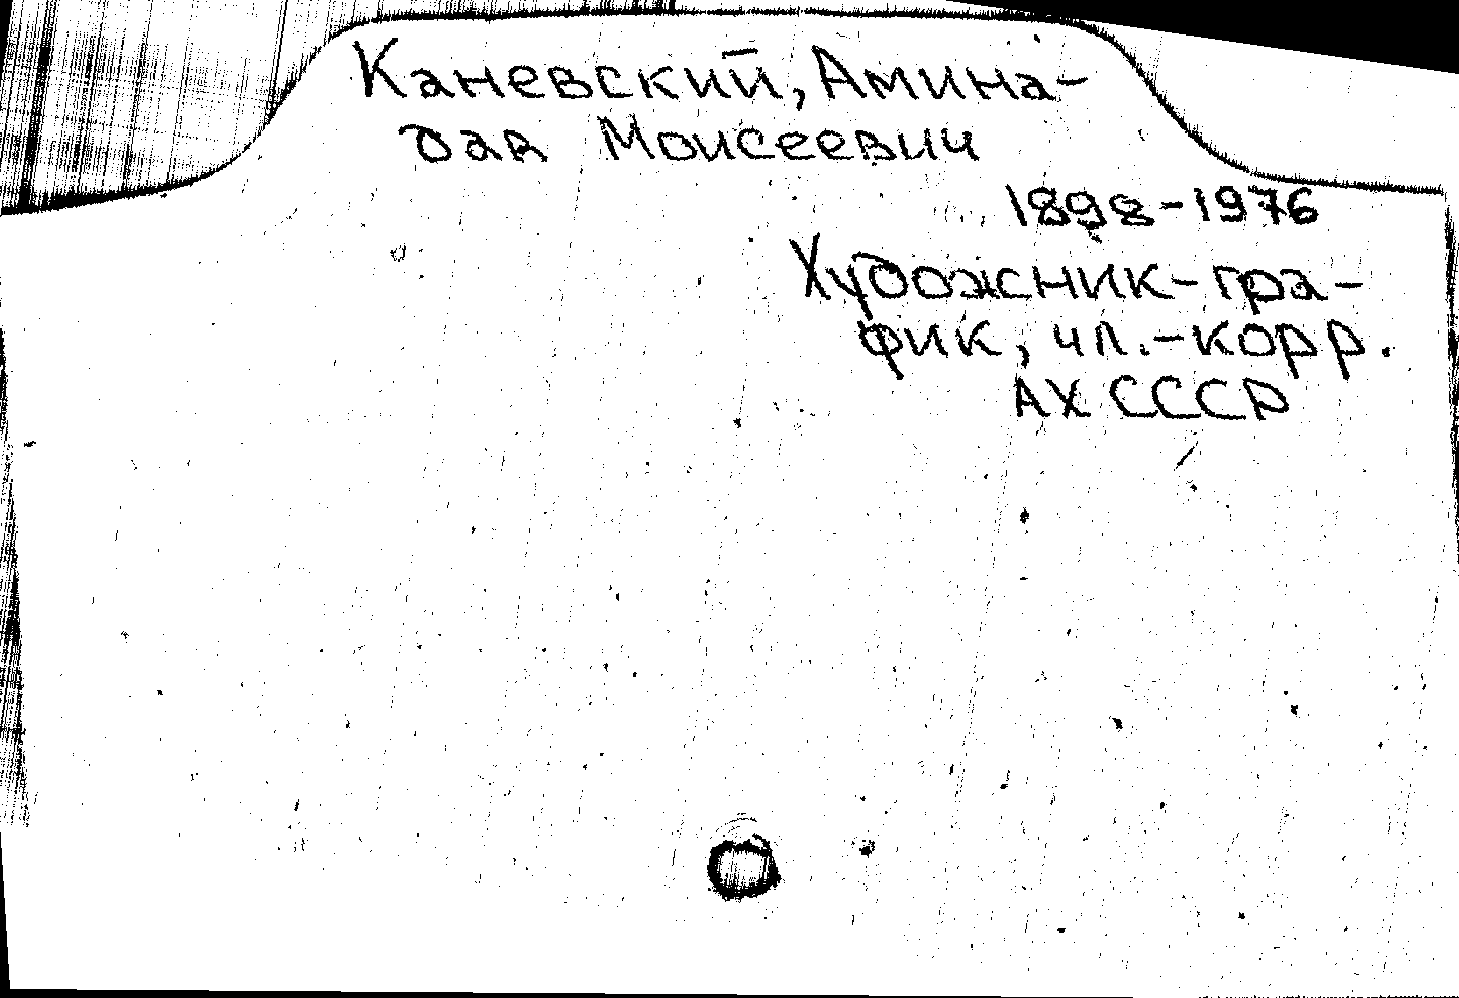 Каневский, Амина-
дав Моисеевич
1898-1976
Художник-гра-
фик, чл.-корр.
АХ СССР